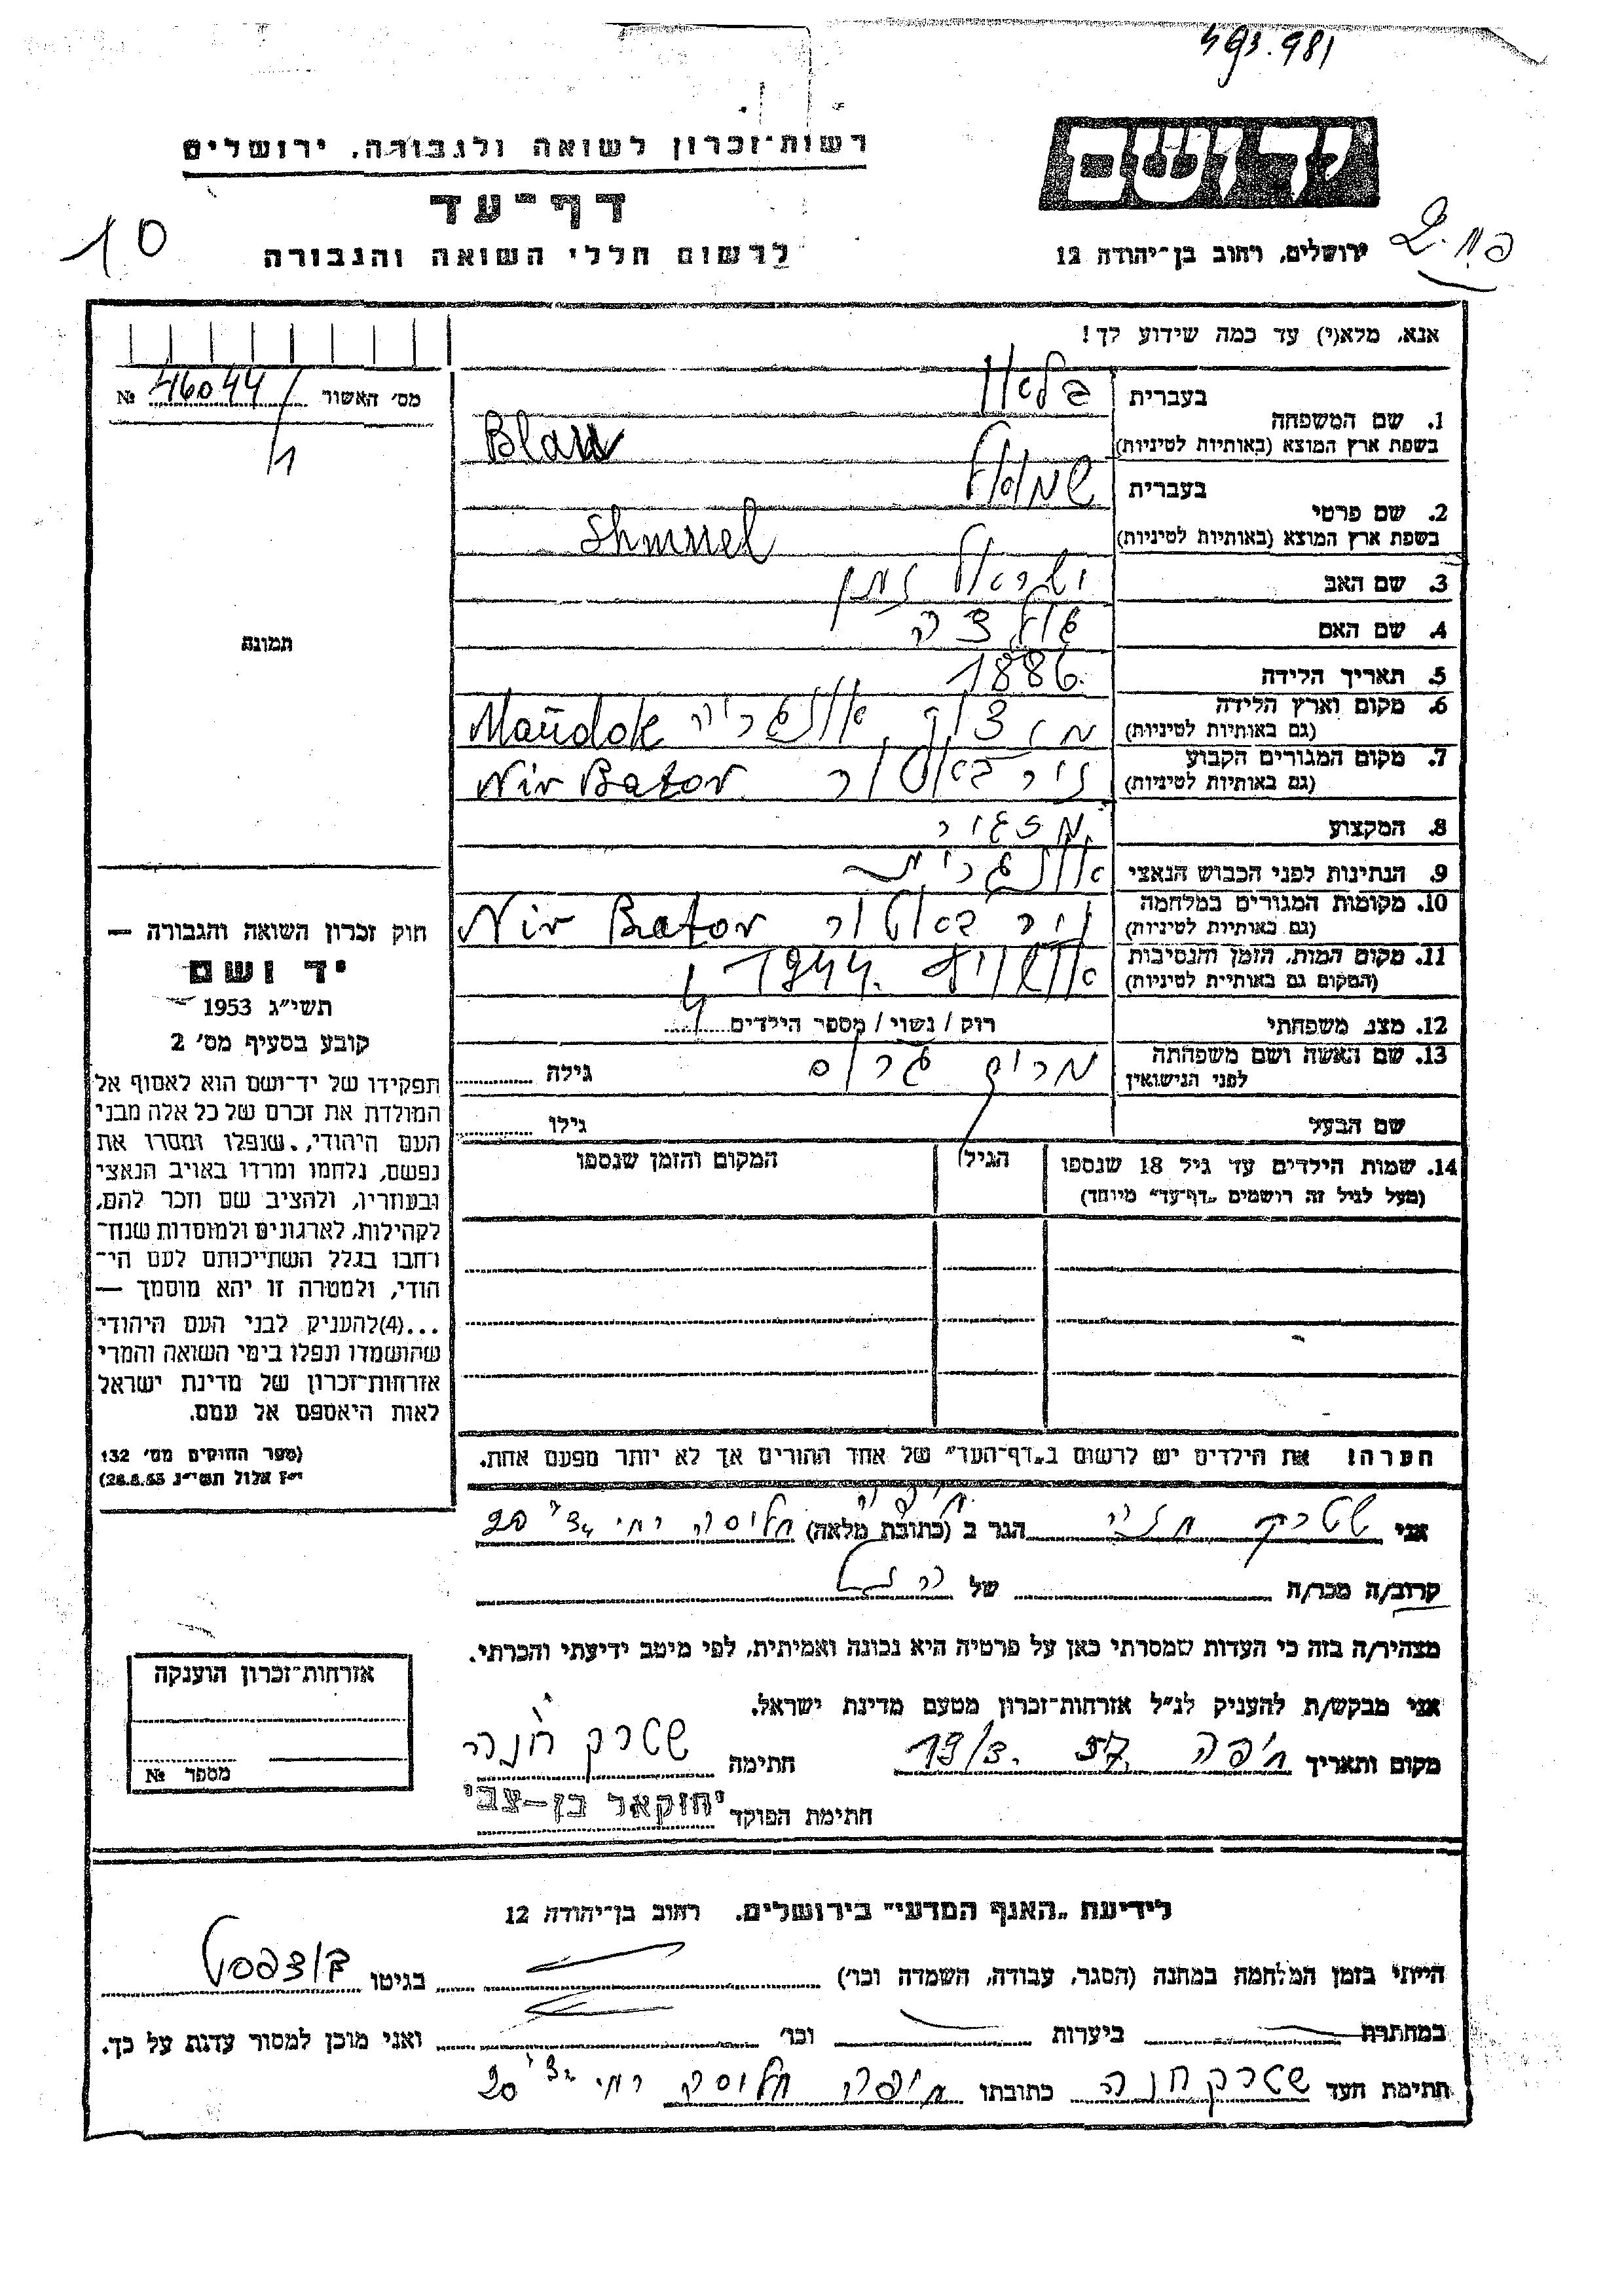 רשות־זכרון לשואה ולגבורה, ירושלים
דף־עד
לרשום חללי השואה והגבורה
10
ירושלים, רחוב בן־יהודה 12
אנא, מלא(י) עד כמה שידוע לך!
מס' האשור 46044 №
1. שם המשפחה
בעברית בלאו
בשפת ארץ המוצא (באותיות לטיניות) Blau
2. שם פרטי
בעברית שמואל
בשפת ארץ המוצא (באותיות לטיניות) Shmuel
3. שם האב ישראל נתן
4. שם האם
5. תאריך הלידה 1886
6. מקום וארץ הלידה
(גם באותיות לטיניות) Mandok
7. מקום המגורים הקבוע
(גם באותיות לטיניות) ניר באטור Nir Bator
8. המקצוע
9. הנתינות לפני הכבוש הנאצי אונגרית
10. מקומות המגורים במלחמה
(גם באותיות לטיניות) ניר באטור Nir Bator
11. מקום המות, הזמן והנסיבות
(המקום גם באותיות לטיניות) אושויץ 1944
12. מצב משפחתי רוק / נשוי / מספר הילדים 4
13. שם האשה ושם משפחתה
לפני הנישואין גילה
שם הבעל גילו
14. שמות הילדים עד גיל 18 שנספו הגיל המקום והזמן שנספו
(מעל לגיל זה רושמים „דף־עד" מיוחד)
הערה! את הילדים יש לרשום ב„דף־העד" של אחד ההורים אך לא יותר מפעם אחת.
תמונה
חוק זכרון השואה והגבורה —
יד ושם
תשי"ג 1953
קובע בסעיף מס' 2
תפקידו של יד־ושם הוא לאסוף אל
המולדת את זכרם של כל אלה מבני
העם היהודי, שנפלו ומסרו את
נפשם, נלחמו ומרדו באויב הנאצי
ובעוזריו, ולהציב שם וזכר להם,
לקהילות, לארגונים ולמוסדות שנח־
רבו בגלל השתייכותם לעם הי־
הודי, ולמטרה זו יהא מוסמך —
...(4)להעניק לבני העם היהודי
שהושמדו ונפלו בימי השואה והמרי
אזרחות־זכרון של מדינת ישראל
לאות היאספם אל עמם.
(ספר החוקים מס' 132
י"ז אלול תשי"ג 28.8.53)
אני שטרק חנה הגר ב (כתובת מלאה) חיפה חליסה 20
קרוב/ה מכר/ה של
מצהיר/ה בזה כי העדות שמסרתי כאן על פרטיה היא נכונה ואמיתית, לפי מיטב ידיעתי והכרתי.
אני מבקש/ת להעניק לנ"ל אזרחות־זכרון מטעם מדינת ישראל.
מקום ותאריך חיפה 19/3. 57 חתימה שטרק חנה
חתימת הפוקד יחזקאל בן־צבי
אזרחות־זכרון הוענקה
מספר №
לידיעת „האגף המדעי" בירושלים. רחוב בן־יהודה 12
הייתי בזמן המלחמה במחנה (הסגר, עבודה, השמדה וכו') בגיטו בודפסט
במחתרת ביערות וכו' ואני מוכן למסור עדות על כך.
חתימת העד שטרק חנה כתובתו חיפה חליסה 20